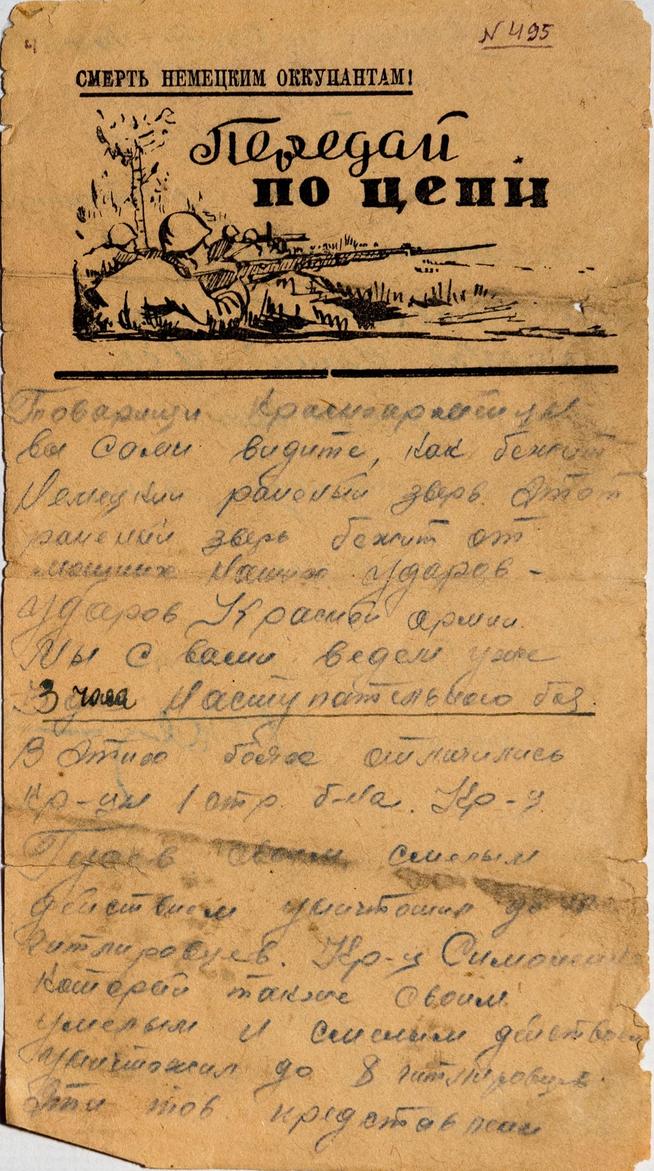 N 495
СМЕРТЬ НЕМЕЦКИМ ОККУПАНТАМ!
Передай
по цепи
Товарищи Красноармейцы
вы сами видите, как бежит
Немецкий раненый зверь. Этот
раненый зверь бежит от
мощних Наших ударов -
ударов Красной армии.
Мы с вами ведем уже
3 часа Наступательного боя.
В этих боях отличились
Кр-цы 1 стр. б-на. Кр-ц
своим смелым
действием уничтожил до
Гитлеровцев. Кр-ц
которой также своим
умелым и смелим действием
уничтожил до 8 гитлеровцев.
Эти тов. представлены